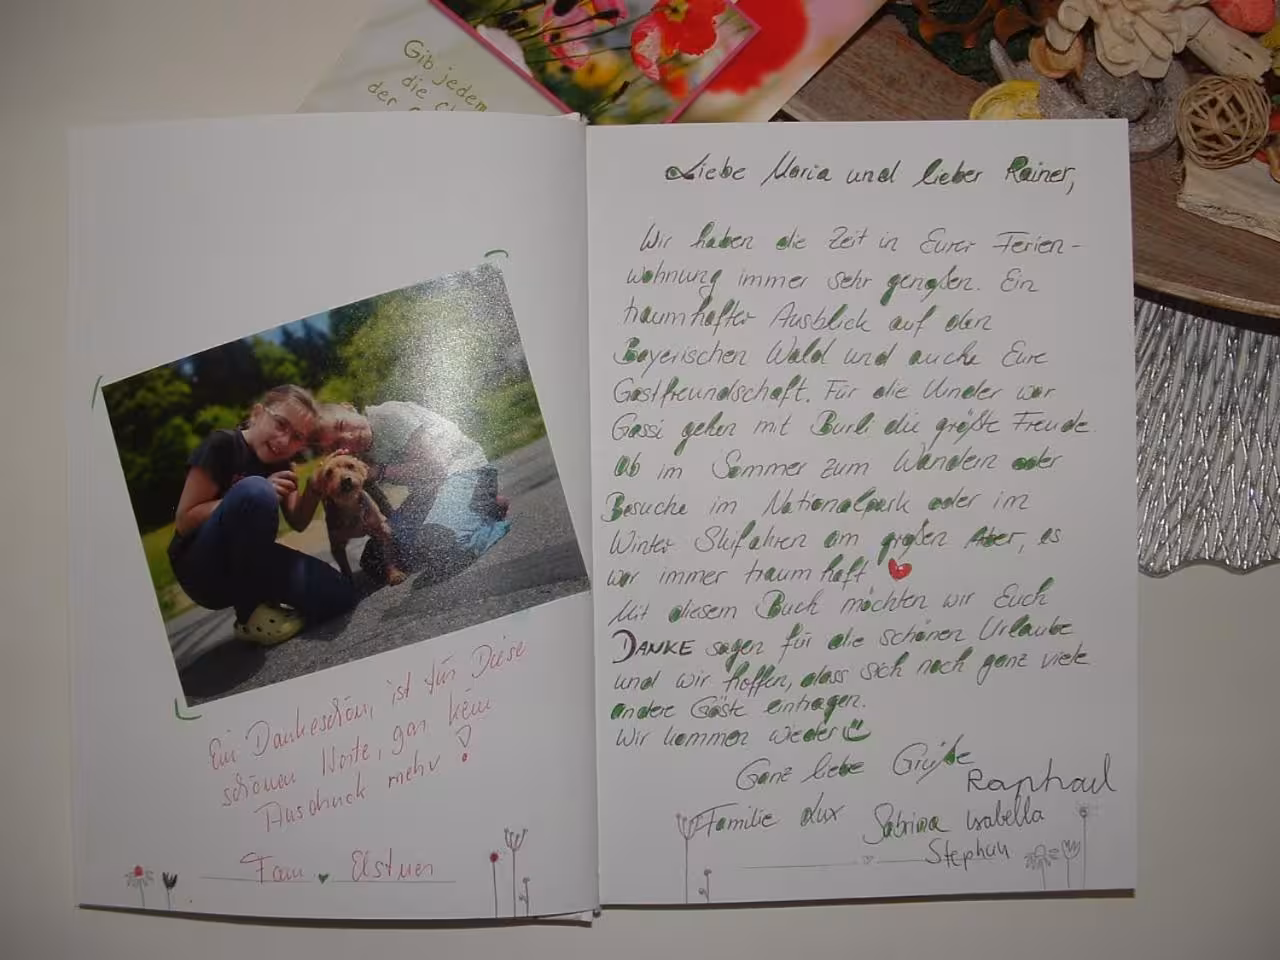 Gib jedem
die
der
Liebe Maria und lieber Rainer,
Wir haben die Zeit in Eurer Ferien-
wohnung immer sehr genoßen. Ein
traumhafter Ausblick auf den
Bayerischen Wald und auche Eure
Gastfreundschaft. Für die Kinder war
Gassi gehen mit Burli die größte Freude.
Ob im Sommer zum Wandern oder
Besuche im Nationalpark oder im
Winter Skifahren am großen Arber, es
war immer traumhaft
Mit diesem Buch möchten wir Euch
DANKE sagen für die schönen Urlaube
und wir hoffen, dass sich noch ganz viele
andere Gäste eintragen.
Wir kommen wieder
Ganz liebe Grüße
Raphael
Familie Lux Sabrina Isabella
Stephan
Ein Dankeschön, ist für Diese
schönen Worte, gar kein
Ausdruck mehr!
Fam